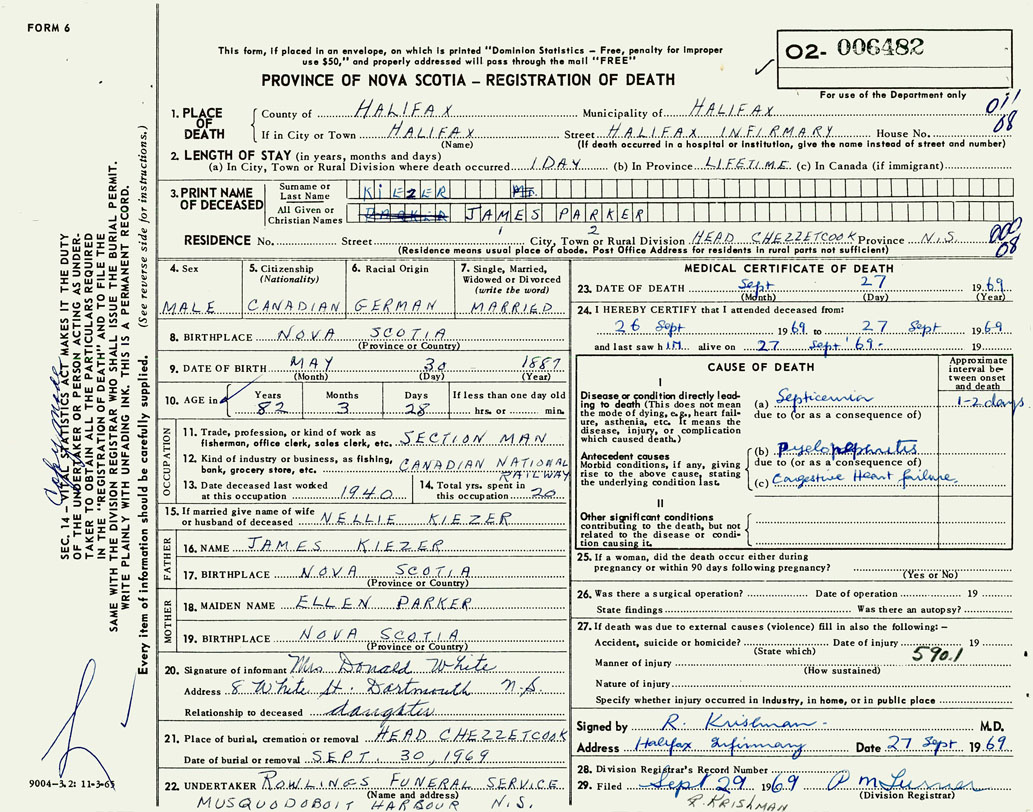 FORM 6
This form, if placed in an envelope, on which is printed "Dominion Statistics – Free, penalty for improper
use $50," and properly addressed will pass through the mail "FREE"
PROVINCE OF NOVA SCOTIA – REGISTRATION OF DEATH
02- 006482
For use of the Department only
1. PLACE OF DEATH
County of HALIFAX Municipality of HALIFAX 011
If in City or Town HALIFAX Street HALIFAX INFIRMARY House No. 08
(Name) (If death occurred in a hospital or institution, give the name instead of street and number)
2. LENGTH OF STAY (in years, months and days)
(a) In City, Town or Rural Division where death occurred 1 DAY (b) In Province LIFETIME (c) In Canada (if immigrant)
3. PRINT NAME OF DECEASED
Surname or Last Name KIEZER
All Given or Christian Names JAMES PARKER
1 2
RESIDENCE No. Street City, Town or Rural Division HEAD CHEZZETCOOK Province N.S. 000
(Residence means usual place of abode. Post Office Address for residents in rural parts not sufficient) 08
4. Sex MALE
5. Citizenship (Nationality) CANADIAN
6. Racial Origin GERMAN
7. Single, Married, Widowed or Divorced (write the word) MARRIED
8. BIRTHPLACE NOVA SCOTIA
(Province or Country)
9. DATE OF BIRTH MAY 30 1887
(Month) (Day) (Year)
10. AGE in Years Months Days If less than one day old
82 3 28 hrs. or min.
OCCUPATION
11. Trade, profession, or kind of work as
fisherman, office clerk, sales clerk, etc. SECTION MAN
12. Kind of industry or business, as fishing,
bank, grocery store, etc. CANADIAN NATIONAL RAILWAY
13. Date deceased last worked at this occupation 1940
14. Total yrs. spent in this occupation 20
15. If married give name of wife
or husband of deceased NELLIE KIEZER
FATHER
16. NAME JAMES KIEZER
17. BIRTHPLACE NOVA SCOTIA
(Province or Country)
MOTHER
18. MAIDEN NAME ELLEN PARKER
19. BIRTHPLACE NOVA SCOTIA
(Province or Country)
20. Signature of informant Mrs Donald White
Address 8 White St. Dartmouth N.S.
Relationship to deceased daughter
21. Place of burial, cremation or removal HEAD CHEZZETCOOK
Date of burial or removal SEPT. 30, 1969
22. UNDERTAKER ROWLINGS FUNERAL SERVICE
(Name and address)
MUSQUODOBOIT HARBOUR N.S.
MEDICAL CERTIFICATE OF DEATH
23. DATE OF DEATH Sept 27 1969
(Month) (Day) (Year)
24. I HEREBY CERTIFY that I attended deceased from:
26 Sept 1969 to 27 Sept 1969
and last saw h IM alive on 27 Sept '69- 19
CAUSE OF DEATH
Approximate interval between onset and death
I
Disease or condition directly leading to death (This does not mean the mode of dying, e.g., heart failure, asthenia, etc. It means the disease, injury, or complication which caused death.)
(a) Septicemia 1-2 days
due to (or as a consequence of)
Antecedent causes
Morbid conditions, if any, giving rise to the above cause, stating the underlying condition last.
(b) pyelonephritis
due to (or as a consequence of)
(c) Congestive Heart failure
II
Other significant conditions
contributing to the death, but not related to the disease or condition causing it.
25. If a woman, did the death occur either during
pregnancy or within 90 days following pregnancy?
(Yes or No)
26. Was there a surgical operation? Date of operation 19
State findings Was there an autopsy?
27. If death was due to external causes (violence) fill in also the following: –
Accident, suicide or homicide? Date of injury 19
(State which) 590.1
Manner of injury
(How sustained)
Nature of injury
Specify whether injury occurred in industry, in home, or in public place
Signed by R. Krishman M.D.
Address Halifax Infirmary Date 27 Sept 1969
28. Division Registrar's Record Number
29. Filed Sept 29 1969
(Division Registrar)
R. KRISHMAN
SEC. 14 – VITAL STATISTICS ACT MAKES IT THE DUTY
OF THE UNDERTAKER OR PERSON ACTING AS UNDER-
TAKER TO OBTAIN ALL THE PARTICULARS REQUIRED
IN THE "REGISTRATION OF DEATH" AND TO FILE THE
SAME WITH THE DIVISION REGISTRAR WHO SHALL ISSUE THE BURIAL PERMIT.
WRITE PLAINLY WITH UNFADING INK. THIS IS A PERMANENT RECORD.
Every item of information should be carefully supplied. (See reverse side for instructions.)
9004-3.2: 11-3-65